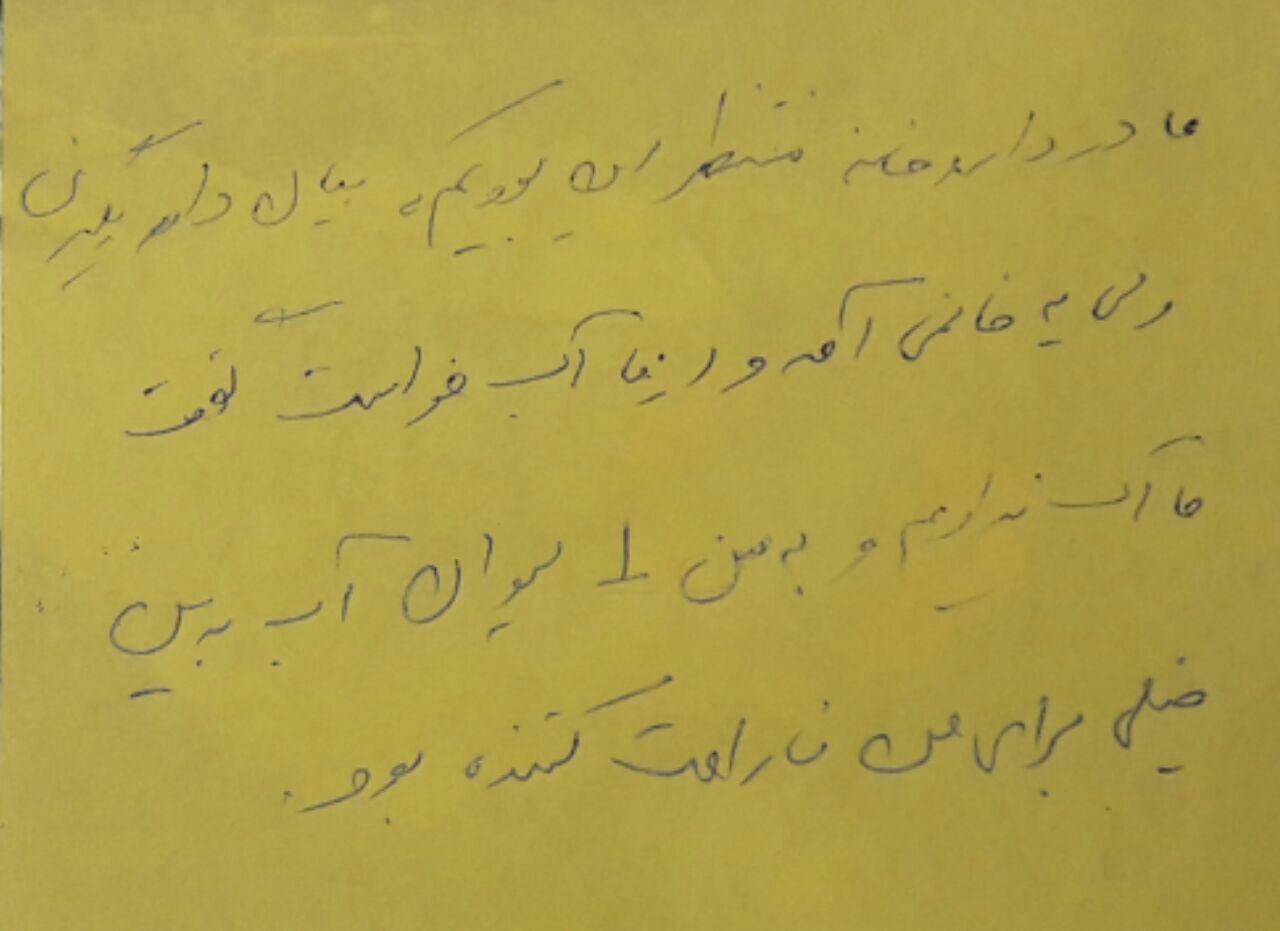 ما در داروخانه منتظر این بودیم، بیان دارو بگیرن
ولی یه خانمی آمد و از ما آب خواست گفت
ما آب نداریم و به من 1 لیوان آب بدین
خیلی برای من ناراحت کننده بود.